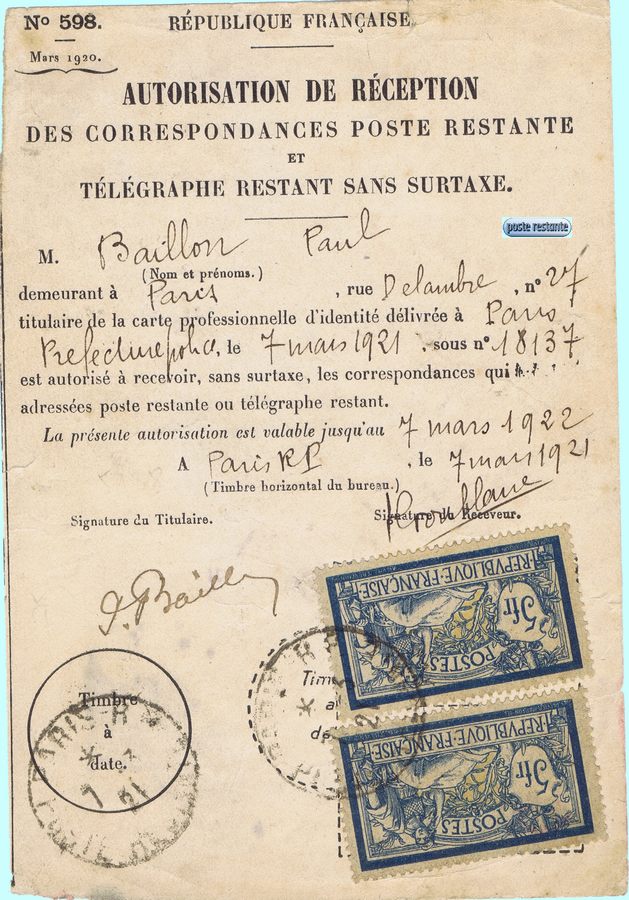 Nº 598.
RÉPUBLIQUE FRANÇAISE
Mars 1920.
AUTORISATION DE RÉCEPTION
DES CORRESPONDANCES POSTE RESTANTE
ET
TÉLÉGRAPHE RESTANT SANS SURTAXE.
poste restante
M. Baillon Paul
(Nom et prénoms.)
demeurant à Paris, rue Delambre, nº 27
titulaire de la carte professionnelle d'identité délivrée à Paris
Prefecture police, le 7 mars 1921, sous nº 18137
est autorisé à recevoir, sans surtaxe, les correspondances qui
adressées poste restante ou télégraphe restant.
La présente autorisation est valable jusqu'au 7 mars 1922
A Paris RP, le 7 mars 1921
(Timbre horizontal du bureau.)
Signature du Titulaire.
Signature du Receveur.
REPUBLIQUE·FRANÇAISE
5fr
POSTES
Timbre
à
date.
PARIS R.P.
7 3 21
REPUBLIQUE·FRANÇAISE
5fr
POSTES